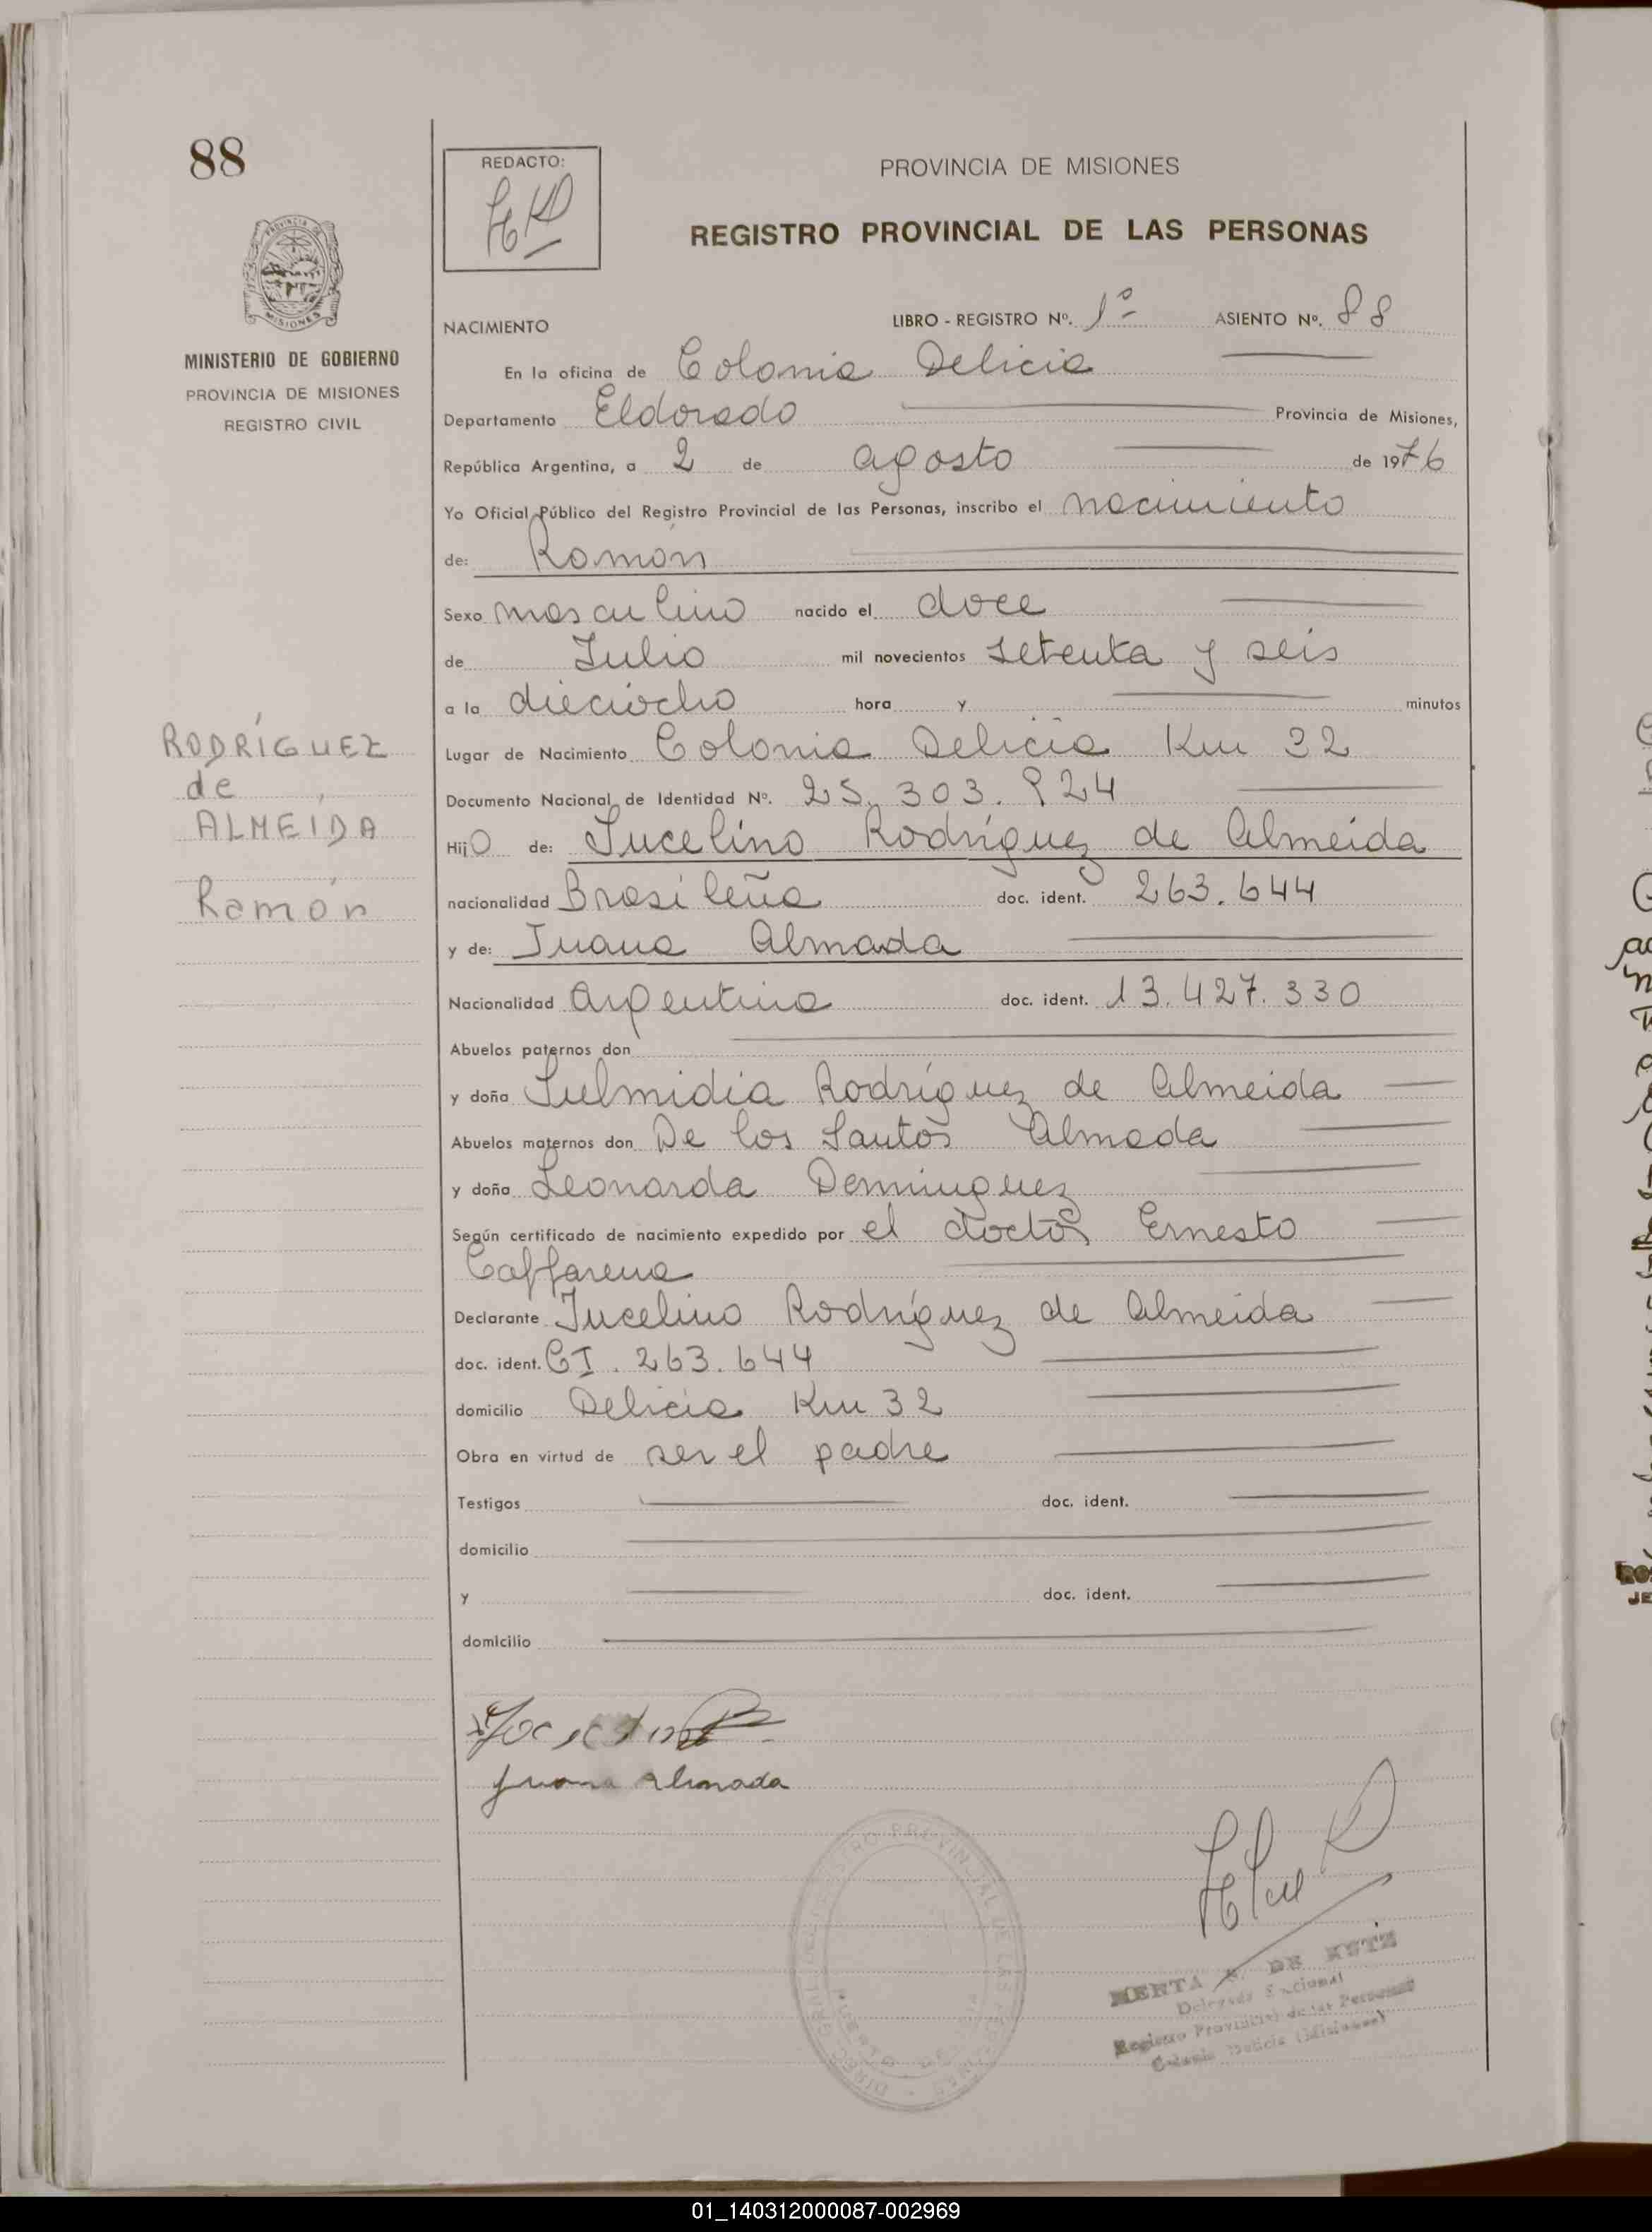 88
REDACTO:
PROVINCIA DE MISIONES
REGISTRO PROVINCIAL DE LAS PERSONAS
MISIONES
MINISTERIO DE GOBIERNO
PROVINCIA DE MISIONES
REGISTRO CIVIL
NACIMIENTO
LIBRO - REGISTRO Nº. 1º
ASIENTO Nº. 88
En la oficina de Colonia Delicia
Departamento Eldorado Provincia de Misiones,
República Argentina, a 2 de agosto de 1976
Yo Oficial Público del Registro Provincial de las Personas, inscribo el nacimiento
de: Ramón
Sexo masculino nacido el doce
de Julio mil novecientos setenta y seis
a la dieciocho hora y minutos
Lugar de Nacimiento Colonia Delicia Km 32
Documento Nacional de Identidad Nº. 25.303.924
Hijo de: Jucelino Rodríguez de Almeida
nacionalidad Brasileña doc. ident. 263.644
y de: Juana Almada
Nacionalidad Argentina doc. ident. 13.427.330
Abuelos paternos don
y doña Sulmidia Rodríguez de Almeida
Abuelos maternos don De los Santos Almada
y doña Leonarda Dominguez
Según certificado de nacimiento expedido por el doctor Ernesto
Caffarena
Declarante Jucelino Rodríguez de Almeida
doc. ident. CI. 263.644
domicilio Delicia Km 32
Obra en virtud de ser el padre
Testigos doc. ident.
domicilio
y doc. ident.
domicilio
RODRÍGUEZ
de
ALMEIDA
Ramón
Juana Almada
DE KUTZ
Registro Provincial de las Personas
Colonia Delicia (Misiones)
01_140312000087-002969